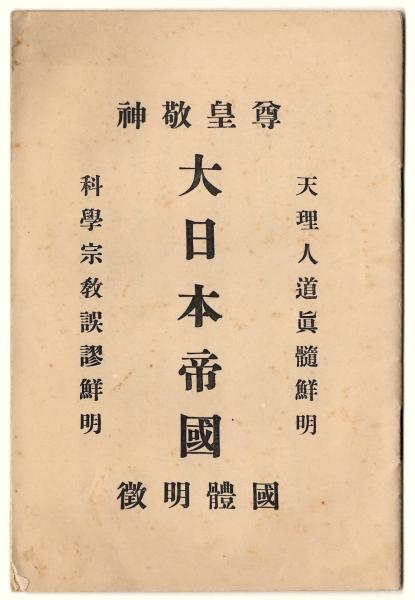 尊皇敬神
天理人道眞髓鮮明
大日本帝國
科學宗敎誤謬鮮明
國體明徵